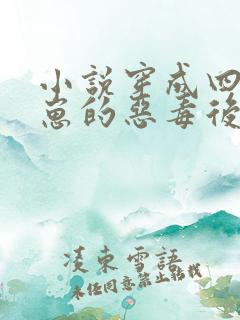 小說穿成四
崽的惡毒後
凌東雪語
未经同意禁止转载